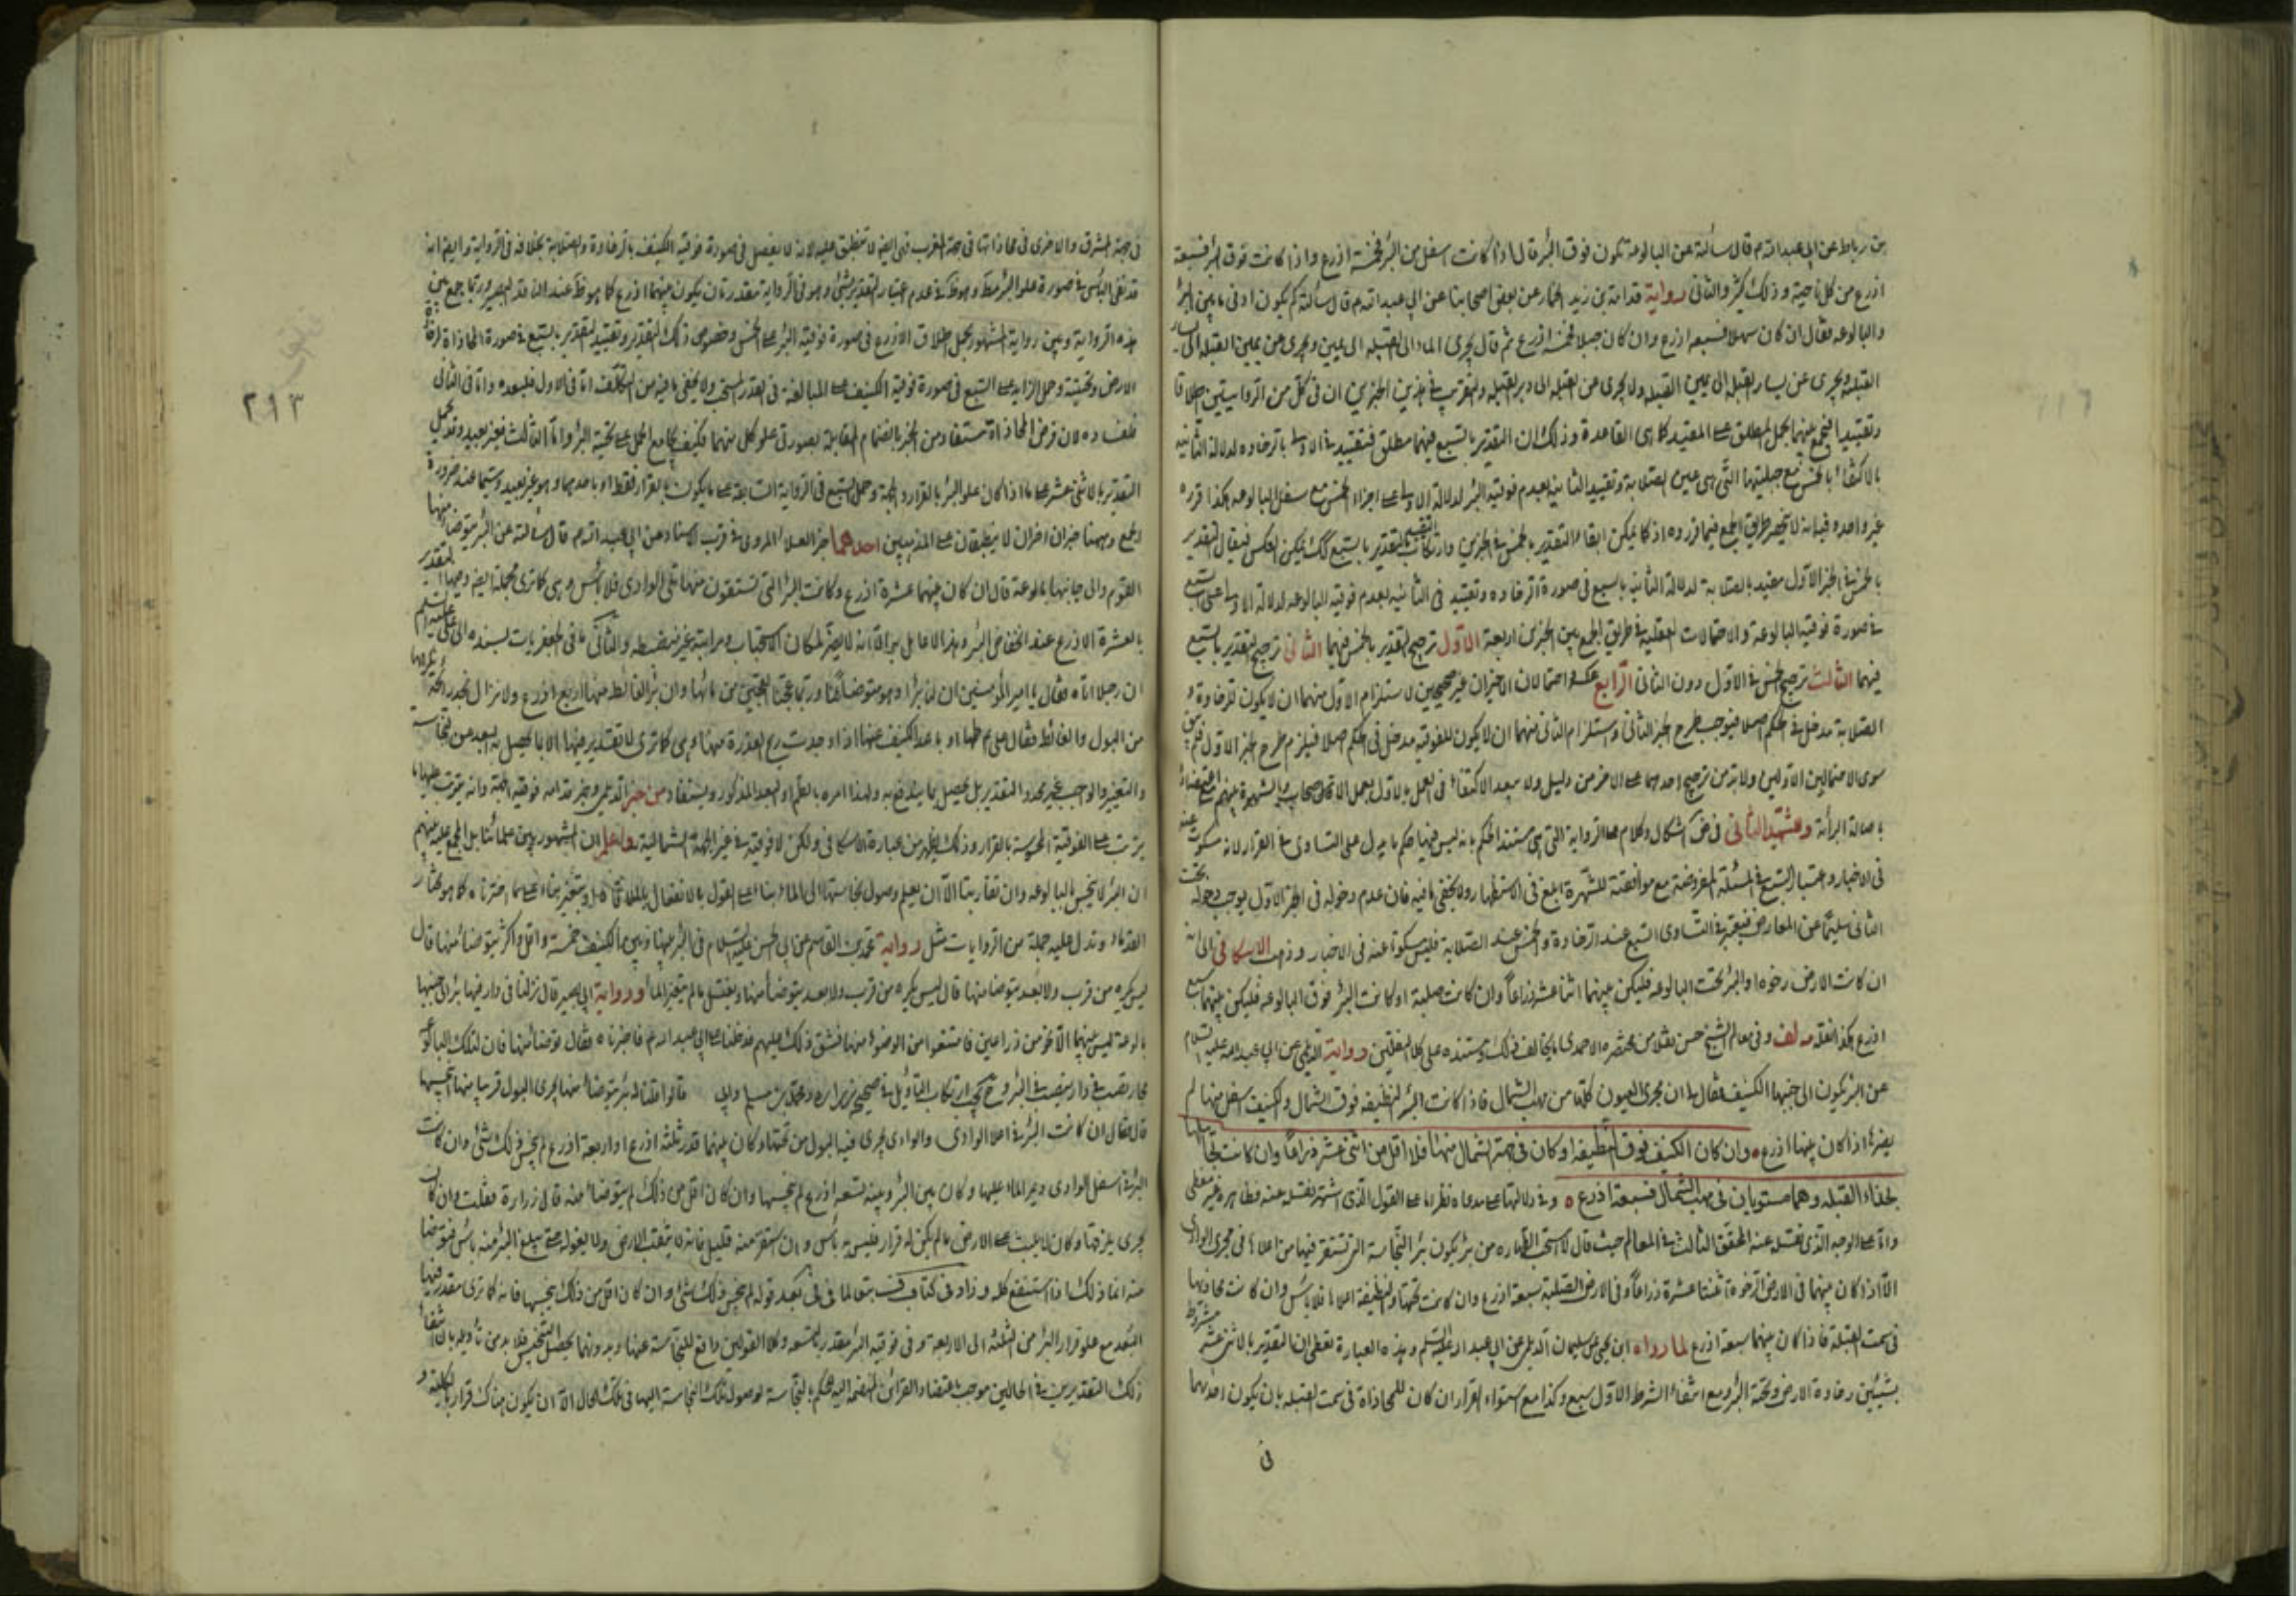 بن رباط عن ابي عبد الله م قال سألته عن البالوعة تكون فوق البئر قال اذا كانت اسفل من البئر فخمسة اذرع واذا كانت فوق البئر فسبعة
اذرع من كل ناحية وذلك كثير والثاني رواية قدامة بن زيد الجمار عن بعض اصحابنا عن ابي عبد الله م قال سألته كم يكون ادنى ما بين البئر
والبالوعه فقال ان كان سهلا فسبعه اذرع وان كان جبلا فخمسة اذرع ثم قال يجرى الماء الى القبله الى يمين ويجرى عن يمين القبله الى يسار
القبله ويجرى عن يسار القبله الى يمين القبله ولا يجرى من القبله الى دبر القبله والتقريب في هذين الخبرين ان في كل من الروايتين اطلاقا
وتقييدا فيجمع بينهما بحمل المطلق على المقيد كما هى القاعدة وذلك ان التقدير بالسبع فيهما مطلق فتقييد في الاولى بالرخاوه لدلالة الثانيه
بالاكتفاء بالخمس مع جبليتها التى هى عين الصلابة وتقييد الثانيه بعدم فوقية البئر لدلالة الاولى على اجزاء الخمس مع سفل البالوعه هكذا قرره
غير واحد وفيه انه لا ينحصر طريق الجمع فيما قرروه اذ كما يمكن ابقاء التقدير بالخمس في الخبرين وارتكاب التقييد للتقدير بالسبع كك يمكن العكس فيقال التقدير
بالخمس في الخبر الاول مقيد بالصلابة لدلالة الثانيه بالسبع في صورة الرخاوه وتقييد في الثانيه بعدم فوقية البالوعه لدلالة الاولى على السبع
في صورة فوقية البالوعة والاحتمالات العقلية في طريق الجمع بين الخبرين اربعة الاول ترجيح التقدير بالخمس فيهما الثاني ترجيح التقدير بالسبع
فيهما الثالث ترجيح الخمس في الاول دون الثاني الرابع عكسه واحتمالان الاخيران غير صحيحين لاستلزام الاول منهما ان لا يكون للرخاوة و
الصلابة مدخل في الحكم اصلا فيوجب طرح الخبر الثاني واستلزام الثاني منهما ان لا يكون للفوقيه مدخل في الحكم اصلا فيلزم طرح الخبر الاول فلم يبق
سوى الاحتمالين الاولين ولا بد من ترجيح احدهما على الاخر من دليل ولا يبعد الاكتفاء في العمل بالاول بعمل الاصحاب والشهرة بينهم مع اعتضاده
باصالة البرأة وعشتهد الثاني في ض اشكال وكلام على الرواية التى هى مستند الحكم بانه ليس فيها حكم ما يدل على التساوى في القرار لانه مسكوت عنه
في الاخبار واعتبار السبع في المسئلة المفروضة مع موافقته للشهرة ابلغ في الاستظهار ولا يخفى ما فيه فان عدم دخوله في الخبر الاول يوجب دخوله تحت
الثاني سليما عن المعارض فيعتبر في التساوى السبع عند الرخاوة والخمس عند الصلابة فليس مسكوتا عنه في الاخبار وذهب الاسكافي الى انه
ان كانت الارض رخوه او البئر تحت البالوعه فليكن بينهما اثنا عشر ذراعا وان كانت صلبة او كانت البئر فوق البالوعه فليكن بينهما سبع
اذرع هكذا نقله عنه لف وفي معالم الشيخ حسن نقلا من مختصره الاحمدى ما يخالف ذلك ومستنده على كلا النقلين رواية الديلمي عن ابي عبد الله عليه السلام
عن البئر يكون الى جنبها الكنيف فقال ان مجرى العيون كلها من مهب الشمال فاذا كانت البئر النظيفه فوق الشمال والكنيف اسفل منها لم
يضرها اذا كان بينهما اذرع وان كان الكنيف فوق النظيفه وكان في جهة الشمال منها فلا اقل من اثنى عشر ذراعا وان كانت تجاها
بحذاء القبله وهما مستويان في مهب الشمال فسبعة اذرع وفي دلالتها على مدعاه نظر اما على القول الذى اشتهر نقله عنه فظاهره غير معطى
واما على الوجه الذى نقله عنه المحقق الثالث في المعالم حيث قال لا استحب الطهاره من بئر يكون بئر النجاسة التى تستقر فيها من اعلاها في مجرى الوادى
الا اذا كان بينهما في الارض الرخوة اثنتا عشرة ذراعا وفي الارض الصلبة سبعة اذرع وان كانت تحتها والنظيفه اعلاها فلا باس وان كانت محاذيها
في سمت القبلة فاذا كان بينهما سبعة اذرع لما رواه ابن يحيى عن سليمان الديلمي عن ابي عبد الله عليه السلم وهذه العبارة تعطى ان التقدير بالاثنى عشر مشروط
بشيئين رخاوة الارض وتحتية البئر ومع انتفاء الشرط الاول سبع وكذا مع استواء القرار ان كان للمحاذاة في سمت القبله بان يكون احدهما
في
في جهة المشرق والاخرى في محاذاتها في جهة المغرب فهى ايضا لا تنطبق عليه لانه لا يفصل في صورة فوقية الكنيف بالرخاوة والصلابة بخلافه في الرواية وايضا انه
قد نفى البأس في صورة علو البئر مطلقا وهو ظاهر في عدم اعتبار التقدير بشئ وهو في الرواية مقدر بان يكون بينهما اذرع كما هو ظاهر عند الناقد البصير وربما جمع بين
هذه الرواية وبين رواية المشهور بحمل اطلاق الاذرع في صورة فوقية البئر على الخمس وخصوص ذلك التقدير وتقييد التقدير بالسبع في صورة المحاذاة لرخاوة
الارض وتحتيته وحمل الزايد على السبع في صورة فوقية الكنيف على المبالغة في القدر المستحب ولا يخفى ما فيه من التكلف اما في الاول فلبعده واما في الثاني
فلفساده لان فرض المحاذاة مستفاد من الخبر بانضمام المقابلة بصورتى علو كل منهما فكيف يجامع الحمل على تحتية البئر واما الثالث فغير بعيد وقد يحمل
التقدير بالاثنى عشر على ما اذا كان علو البئر بالقرار والجهة وحمل السبع في الرواية السابقة على ما يكون بالقرار فقط او باحدهما وهو غير بعيد لاسيما عند ضرورة
الجمع وههنا خبران اخران لا ينطبقان على المذهبين احدهما خبر العلاء المروى في قرب الاسناد عن ابي عبد الله م قال سألته عن البئر يتوضأ منها
القوم والى جانبها بالوعة قال ان كان بينهما عشرة اذرع وكانت البئر التى تستقون منها تلى الوادى فلا باس وهى كما ترى مجملة ايضا وفيها التقدير
بالعشرة الاذرع عند انخفاض البئر وهذا لا عامل به الا انه لا يضر لمكان الاستحباب ومراتبه غير منضبطه والثاني ما في الجعفريات بسنده الى علي عليه السلم
ان رجلا اتاه فقال يا امير المؤمنين ان لنا بئرا وهو متوضأ لنا وربما عجنا العجين من مائها وان بئر الغائط منها اربع اذرع ولا نزال نجد رائحة نكرهها
من البول والغائط فقال علي م طمها او باعد الكنيف عنها اذا وجدت ريح العذرة منها وهى كما ترى لا تقدير فيها الا بما يحصل به البعد من نجاسة
والتغيير والواجب غير محدد بالتقدير بل يحصل بما يندفع به ولهذا امره بالطم او البعد المذكور ويستفاد من خبر الديلمي وخبر قدامه فوقية الجهة وانه يترتب عليها ما
يترتب على الفوقية الحسية بالقرار وذلك يظهر من عبارة الاسكافي ولكن لا فوقية في غير الجهة الشمالية واعلم ان المشهور بين علمائنا بل المجمع عليه بينهم
ان البئر لا ينجس بالبالوعه وان تقاربتا الا ان يعلم وصول نجاستها الى الماء بناء على القول بالانفعال بالملاقاة او بتغيره بناء على ما اخترناه كما هو مختار
القدماء وتدل عليه جملة من الروايات مثل رواية محمد بن القاسم عن ابي الحسن عليه السلام في البئر بينها وبين الكنيف خمسة واقل واكثر يتوضأ منها قال
ليس يكره من قرب ولا بعد يتوضا منها قال ليس يكره من قرب ولا بعد يتوضأ منها ويغتسل ما لم يتغير الماء ورواية ابي بصير قال نزلنا في دار فيها بئر الى جنبها
بالوعة ليس بينهما الا نحو من ذراعين فامتنعوا من الوضوء منها فشق ذلك عليهم فدخلنا على ابي عبد الله م فاخبرناه فقال توضأ منها فان لتلك البالوعة
مجارى تصب في واد ينصب في البحر وح يجب ارتكاب التأويل في صحيح زراره ومحمد بن مسلم وابي قالوا قلنا له بئر يتوضأ منها يجرى البول قريبا منها اينجسها
قال فقال ان كانت البئر في اعلا الوادى والوادى يجرى فيه البول من تحتها وكان بينهما قدر ثلثة اذرع او اربعة اذرع لم ينجس ذلك شئ وان كانت
البئر في اسفل الوادى ويمر الماء عليها وكان بين البئر وبينه تسعه اذرع لم ينجسها وان كان اقل من ذلك لم يتوضأ منه قال زرارة فقلت وان كان
يجرى بلزقها وكان لا يلبث على الارض ما لم يكن له قرار فليس به بأس وان استقر منه قليل فانه لا يثقب الارض ولا يغوله حتى يبلغ البئر منه باس فتوضا
منه انما ذلك اذا استنقع كله وزاد في كتاب متابعا لما في في بعد قوله لم ينجس ذلك شئ وان كان اقل من ذلك ينجسها فانه كما ترى مقدر فيها
البعد مع علو قرار البئر من الثلثه الى الاربعه وفي فوقية البئر مقدر بالتسعه وكلا القولين دافع للنجاسة عنها وبدونهما يحصل التنجيس فلا بد من تأويله بان انتفاء
ذلك التقديرين في الحالين موجب باعتضاد القرائن المنضمه اليه للحكم بالنجاسة لوصول تلك النجاسة اليها في تلك الحال الا ان يكون هناك قرار بالكلية و
فتوى
٢١٣